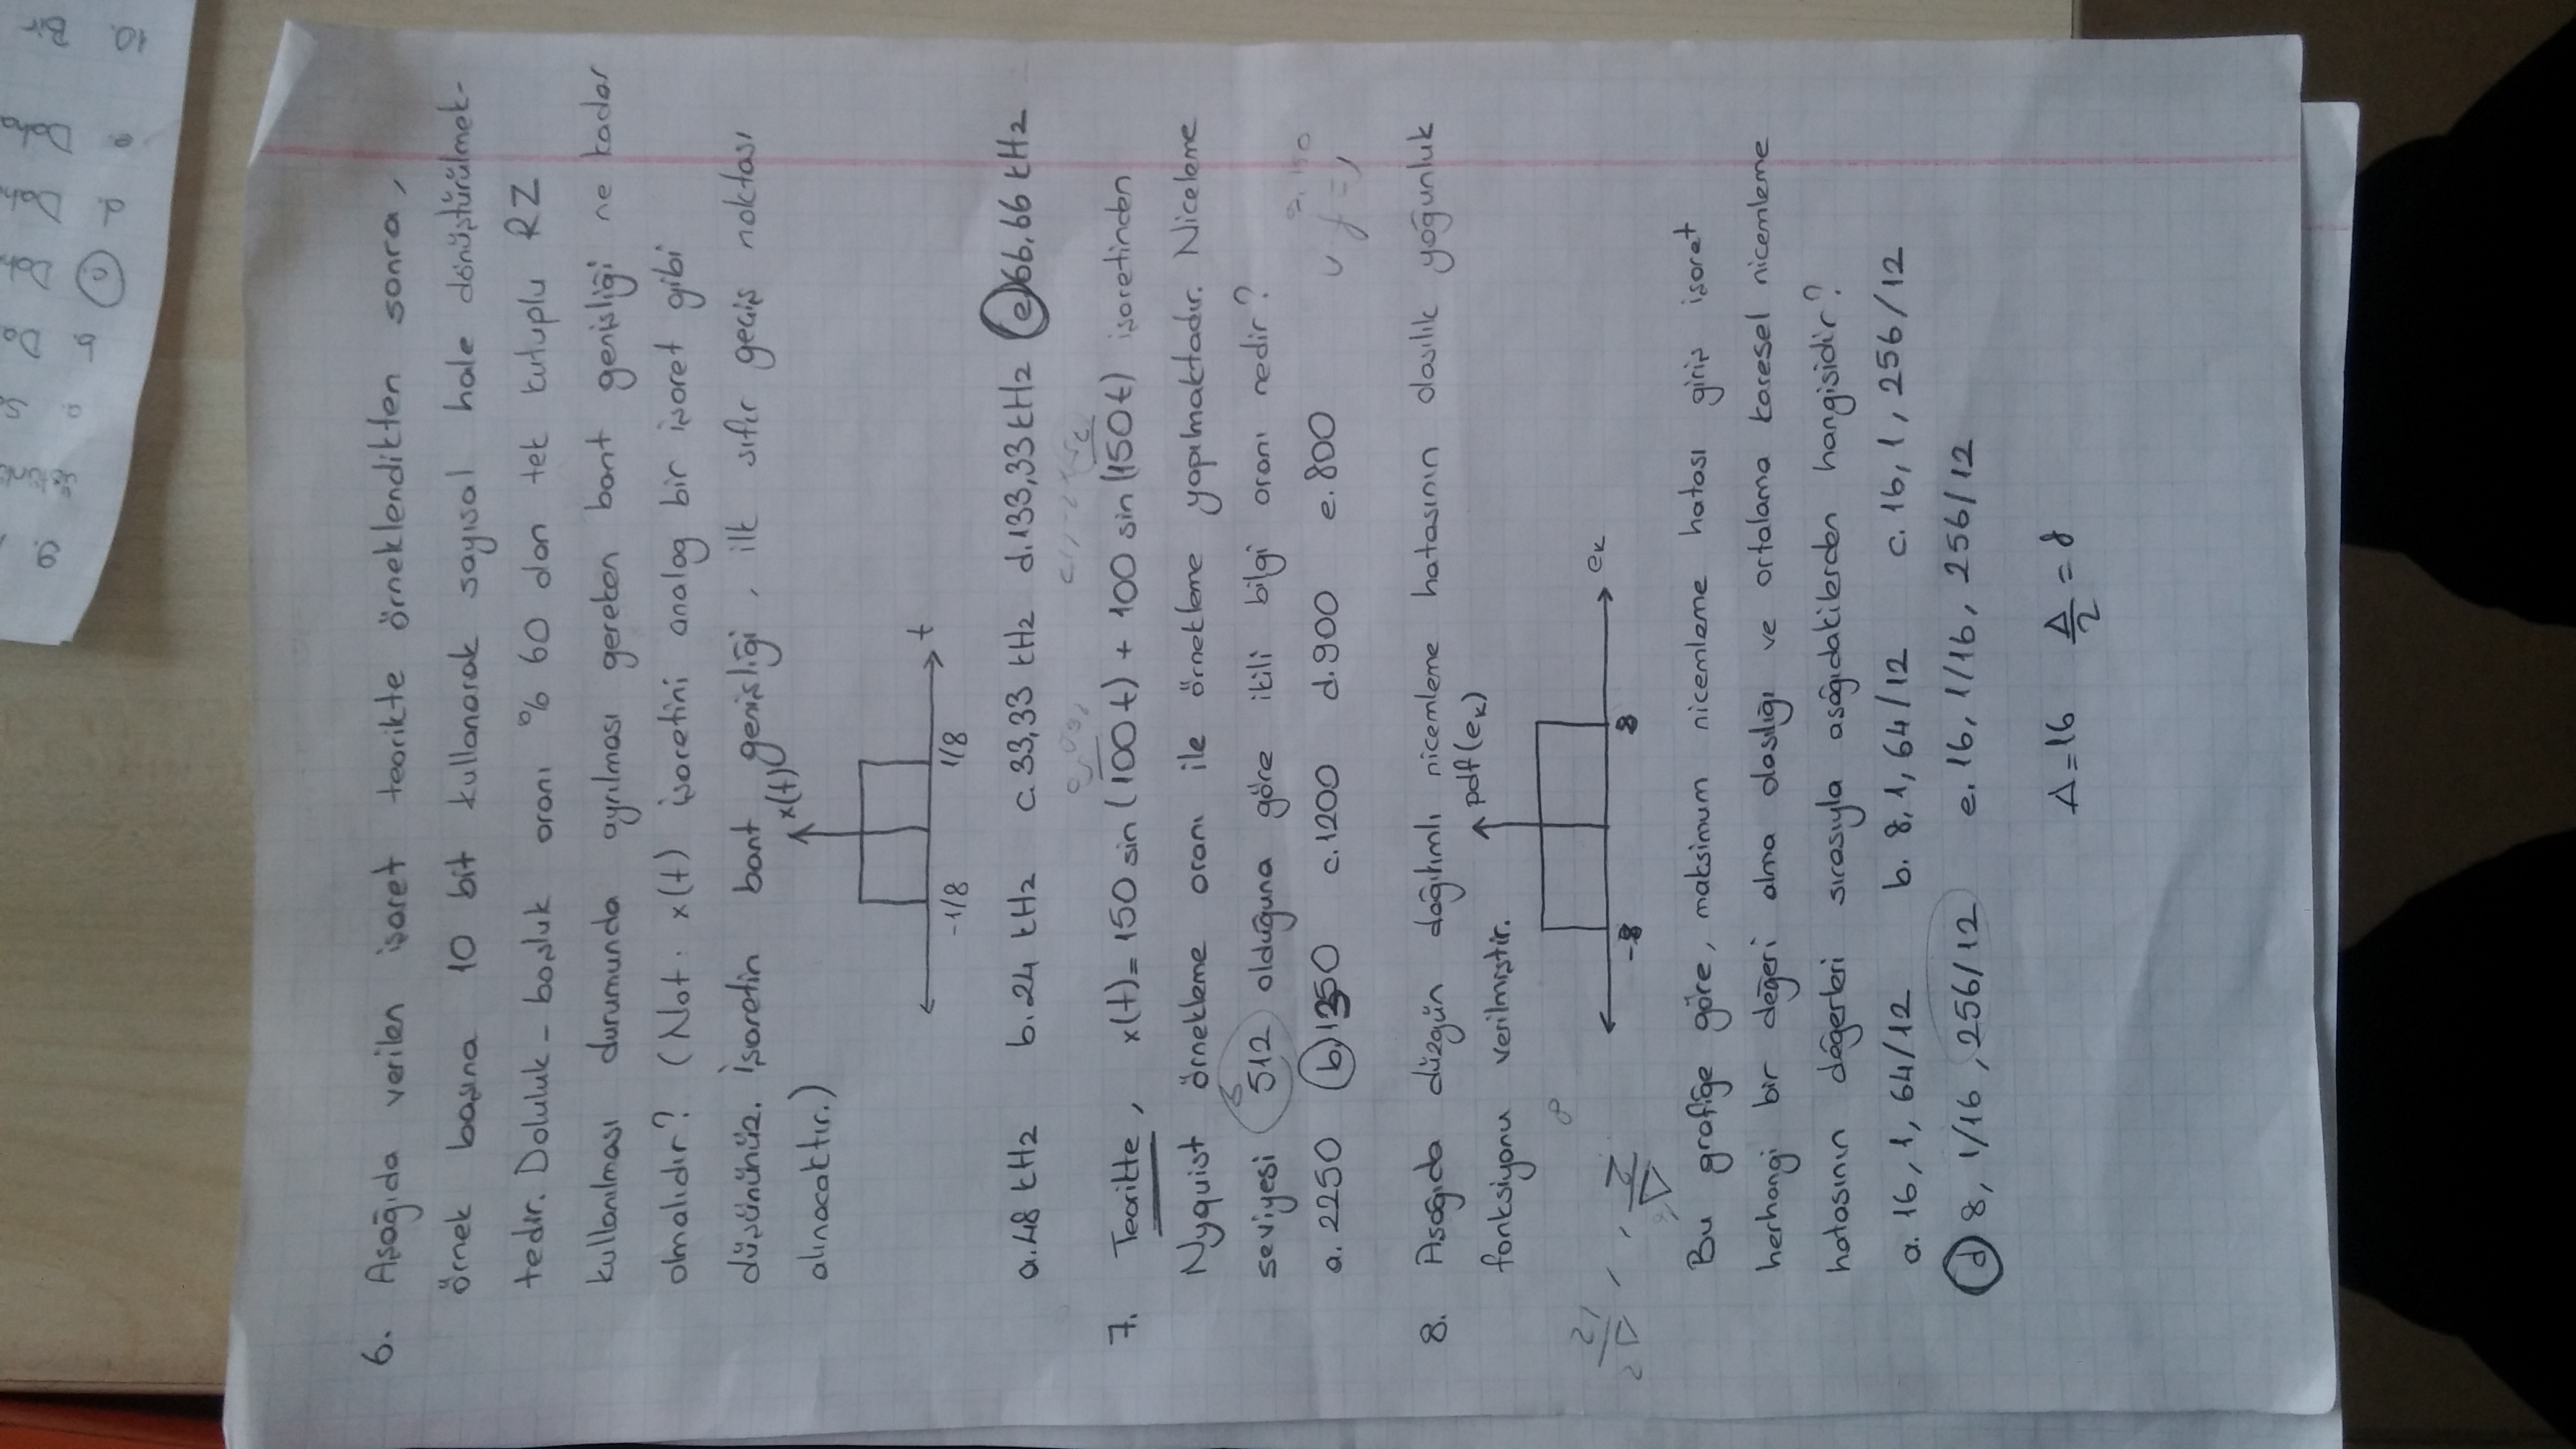 9.
üstünl
a. S
b. Da
c. Dah
d. Dah
e. Daha
10. Bir
6. Aşağıda verilen işaret teorikte örneklendikten sonra,
örnek başına 10 bit kullanarak sayısal hale dönüştürülmek-
tedir. Doluluk - boşluk oranı % 60 dan tek kutuplu RZ
kullanılması durumunda ayrılması gereken bant genişliği ne kadar
olmalıdır? (Not. x(t) işaretini analog bir işaret gibi
düşününüz. İşaretin bant genişliği, ilk sıfır geçiş noktası
alınacaktır.)
x(t)
t
-1/8 1/8
a. 48 kHz b. 24 kHz c. 33,33 kHz d. 133,33 kHz e) 66,66 kHz
7. Teorikte, x(t) = 150 sin (100t) + 100 sin (150t) işaretinden
Nyquist örnekleme oranı ile örnekleme yapılmaktadır. Niceleme
seviyesi 512 olduğuna göre ikili bilgi oranı nedir?
a. 2250 b. 1350 c. 1200 d. 900 e. 800
8. Aşağıda düzgün dağılımlı nicemleme hatasının olasılık yoğunluk
fonksiyonu verilmiştir.
pdf(eₖ)
eₖ
-8 8
Bu grafiğe göre, maksimum nicemleme hatası giriş işaret
herhangi bir değeri alma olasılığı ve ortalama karesel nicemleme
hatasının değerleri sırasıyla aşağıdakilerden hangisidir?
a. 16, 1, 64/12 b. 8, 1, 64/12 c. 16, 1, 256/12
d) 8, 1/16, 256/12 e. 16, 1/16, 256/12
Δ=16 Δ/2 = 8